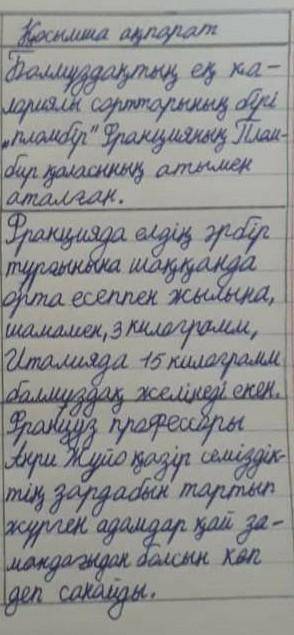 Қосымша ақпарат
Балмұздақтың ең ка-
лориялы сорттарының бірі
„пломбір" Францияның Плом-
бир қаласының атымен
аталған.
Францияда елдің әрбір
тұрғынына шаққанда
орта есеппен жылына,
шамамен, 3 килограмм,
Италияда 15 килограмм
балмұздақ желінеді екен.
Француз профессоры
Анри Жуйо қазір семіздік-
тің зардабын тартып
жүрген адамдар қай за-
мандағыдан болсын көп
деп санайды.